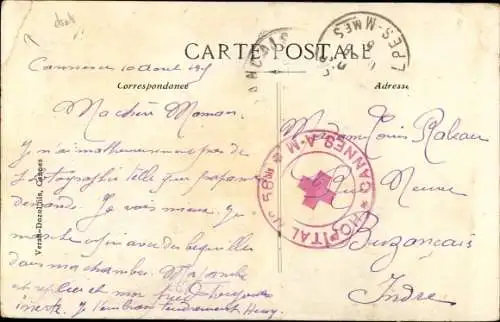 CARTE POSTALE
Correspondance
Adresse
LPES-MMES
Cannes 10 Aout
Ma chère Maman
Je n'ai malheureusement pas de
photographie telle que papa me
demande. Je vais mieux. Je
marche avec des béquilles
dans ma chambre. Ma jambe
et
inerte. Je t'embrasse tendrement Henry
Madame Louis Rabeau
Rue Neuve
Buzançais
Indre
HOPITAL No 58
CANNES-A-M
Cannes